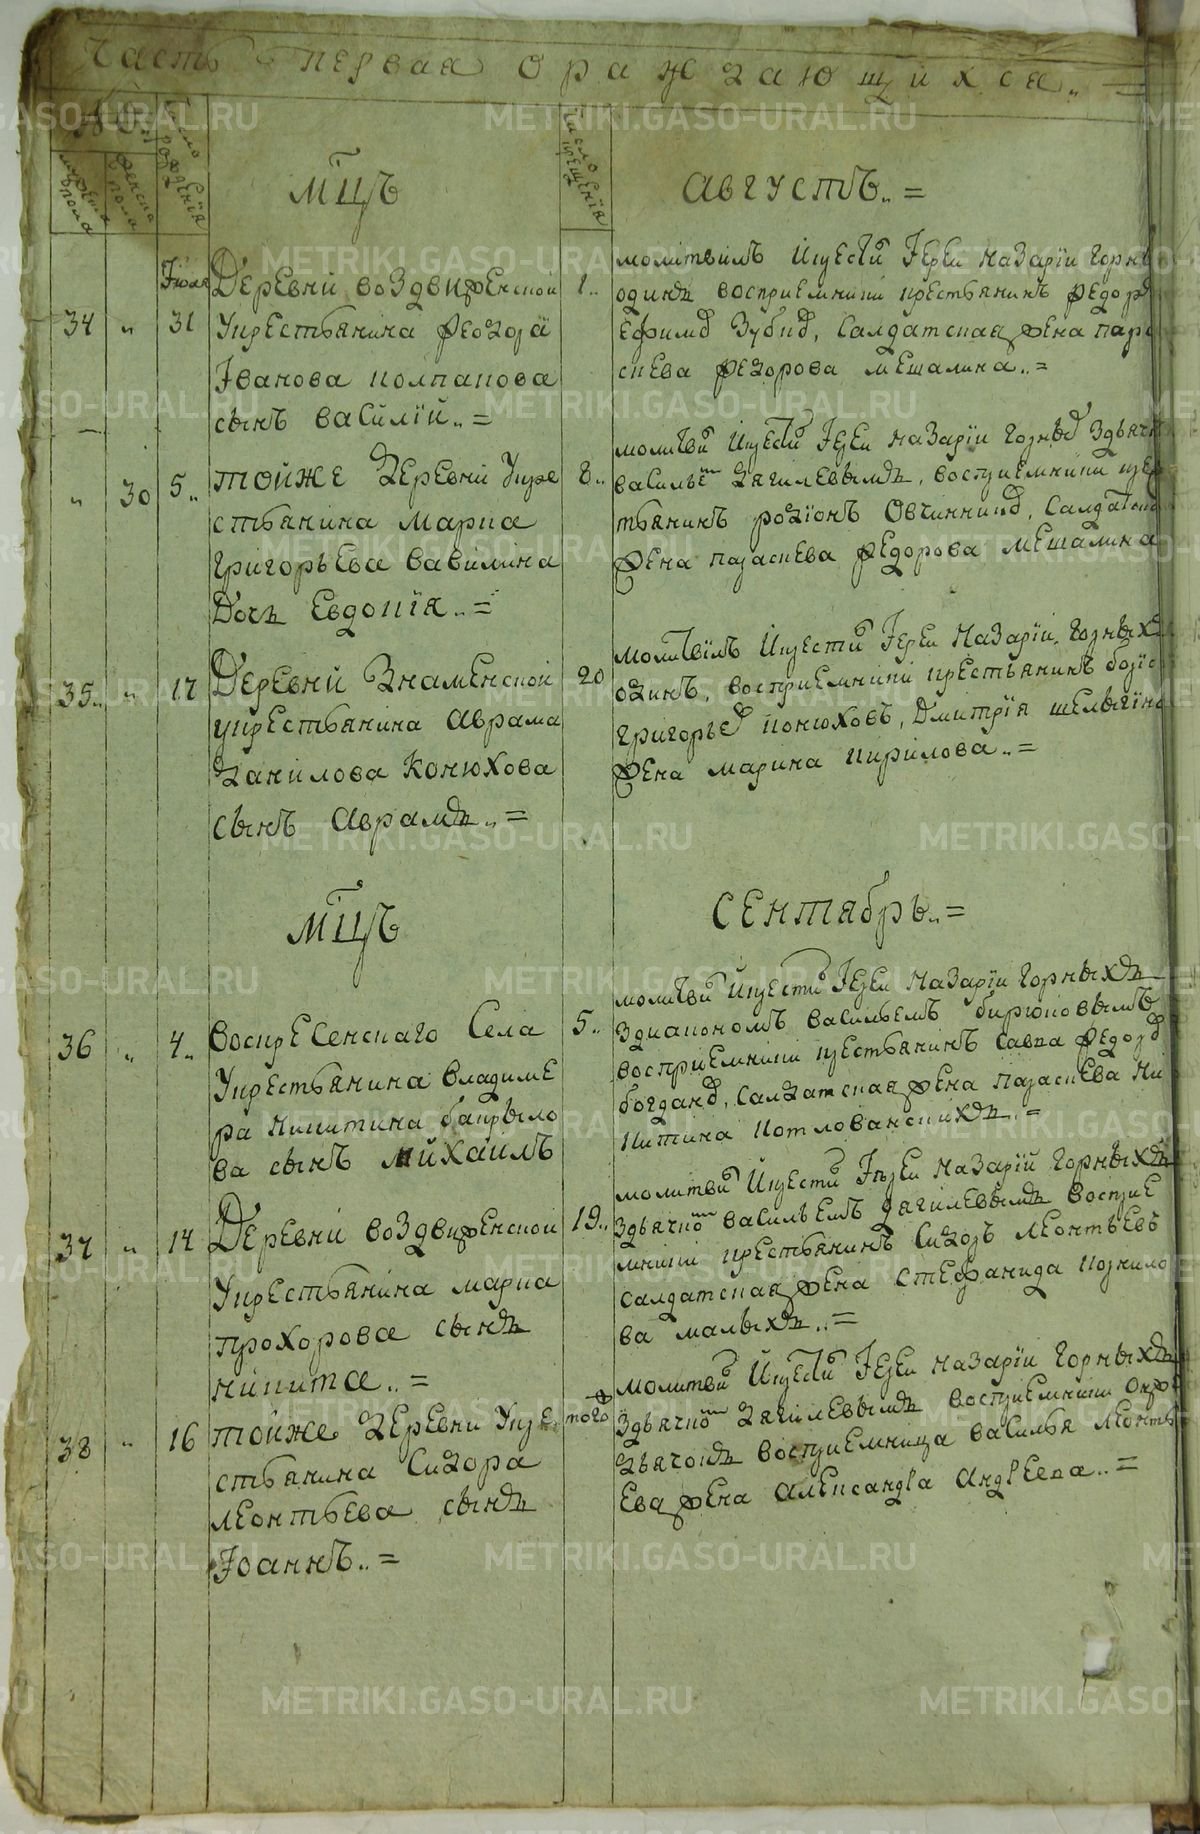 Часть первая ораждающихся..=
№
мужеска пола
женска пола
число рождения
число крещения
мцъ
августъ..=
Июля
34 " 31
Деревни воздвиженской
укрестьянина феодора
Іванова колпакова
сынъ василий..=
1..
молитвилъ икрести Іерей назарии горн
одинъ восприемники крестьянинъ федор
ефимо зубко, салдатская жена пара
скева федорова мешалкина..=
" 30 5..
тойже деревни укре
стьянина марка
григорьева вавилина
дочь евдокия..=
8..
молитви икрести Іерей назарии горных здьячк
василье дягилевымъ, восприемники кре
тьянинъ родионъ овчиннико, салдатска
жена параскева федорова мешалкина
35.. " 17
Деревни знаменской
укрестьянина аврама
данилова конюхова
сынъ аврамъ..=
20
молитвилъ икрести Іерей назарии горных
одинъ, восприемники крестьянинъ борис
григорье конюховъ, дмитрия шелыгина
жена марина кирилова..=
мцъ
сентябрь..=
36 " 4..
воскресенскаго села
укрестьянина владиме
ра никитина бакрыло
ва сынъ михаилъ
5..
молитви икрести Іерей назарии горныхъ
здиакономъ васильемъ бирюковымъ
восприемники крестьянинъ савка федоро
богдано, салдатская жена параскева ни
китина котлованскихъ..=
37 " 14
Деревни воздвиженской
укрестьянина марка
прохорова сынъ
никита..=
19..
молитви икрести Іерей назарий горныхъ
здьячко васильемъ дягилевымъ восприе
мники крестьянинъ сидоръ леонтьевъ
салдатская жена стефанида корнило
ва малыхъ..=
38 " 16
тойже деревни укре
стьянина сидора
леонтьева сынъ
Іоаннъ..=
того ж
молитви икрести Іерей назарии горныхъ
здьячко дягилевымъ восприемники онро
дьячокъ восприемница василья леонть
ева жена александра андреева..=
METRIKI.GASO-URAL.RU